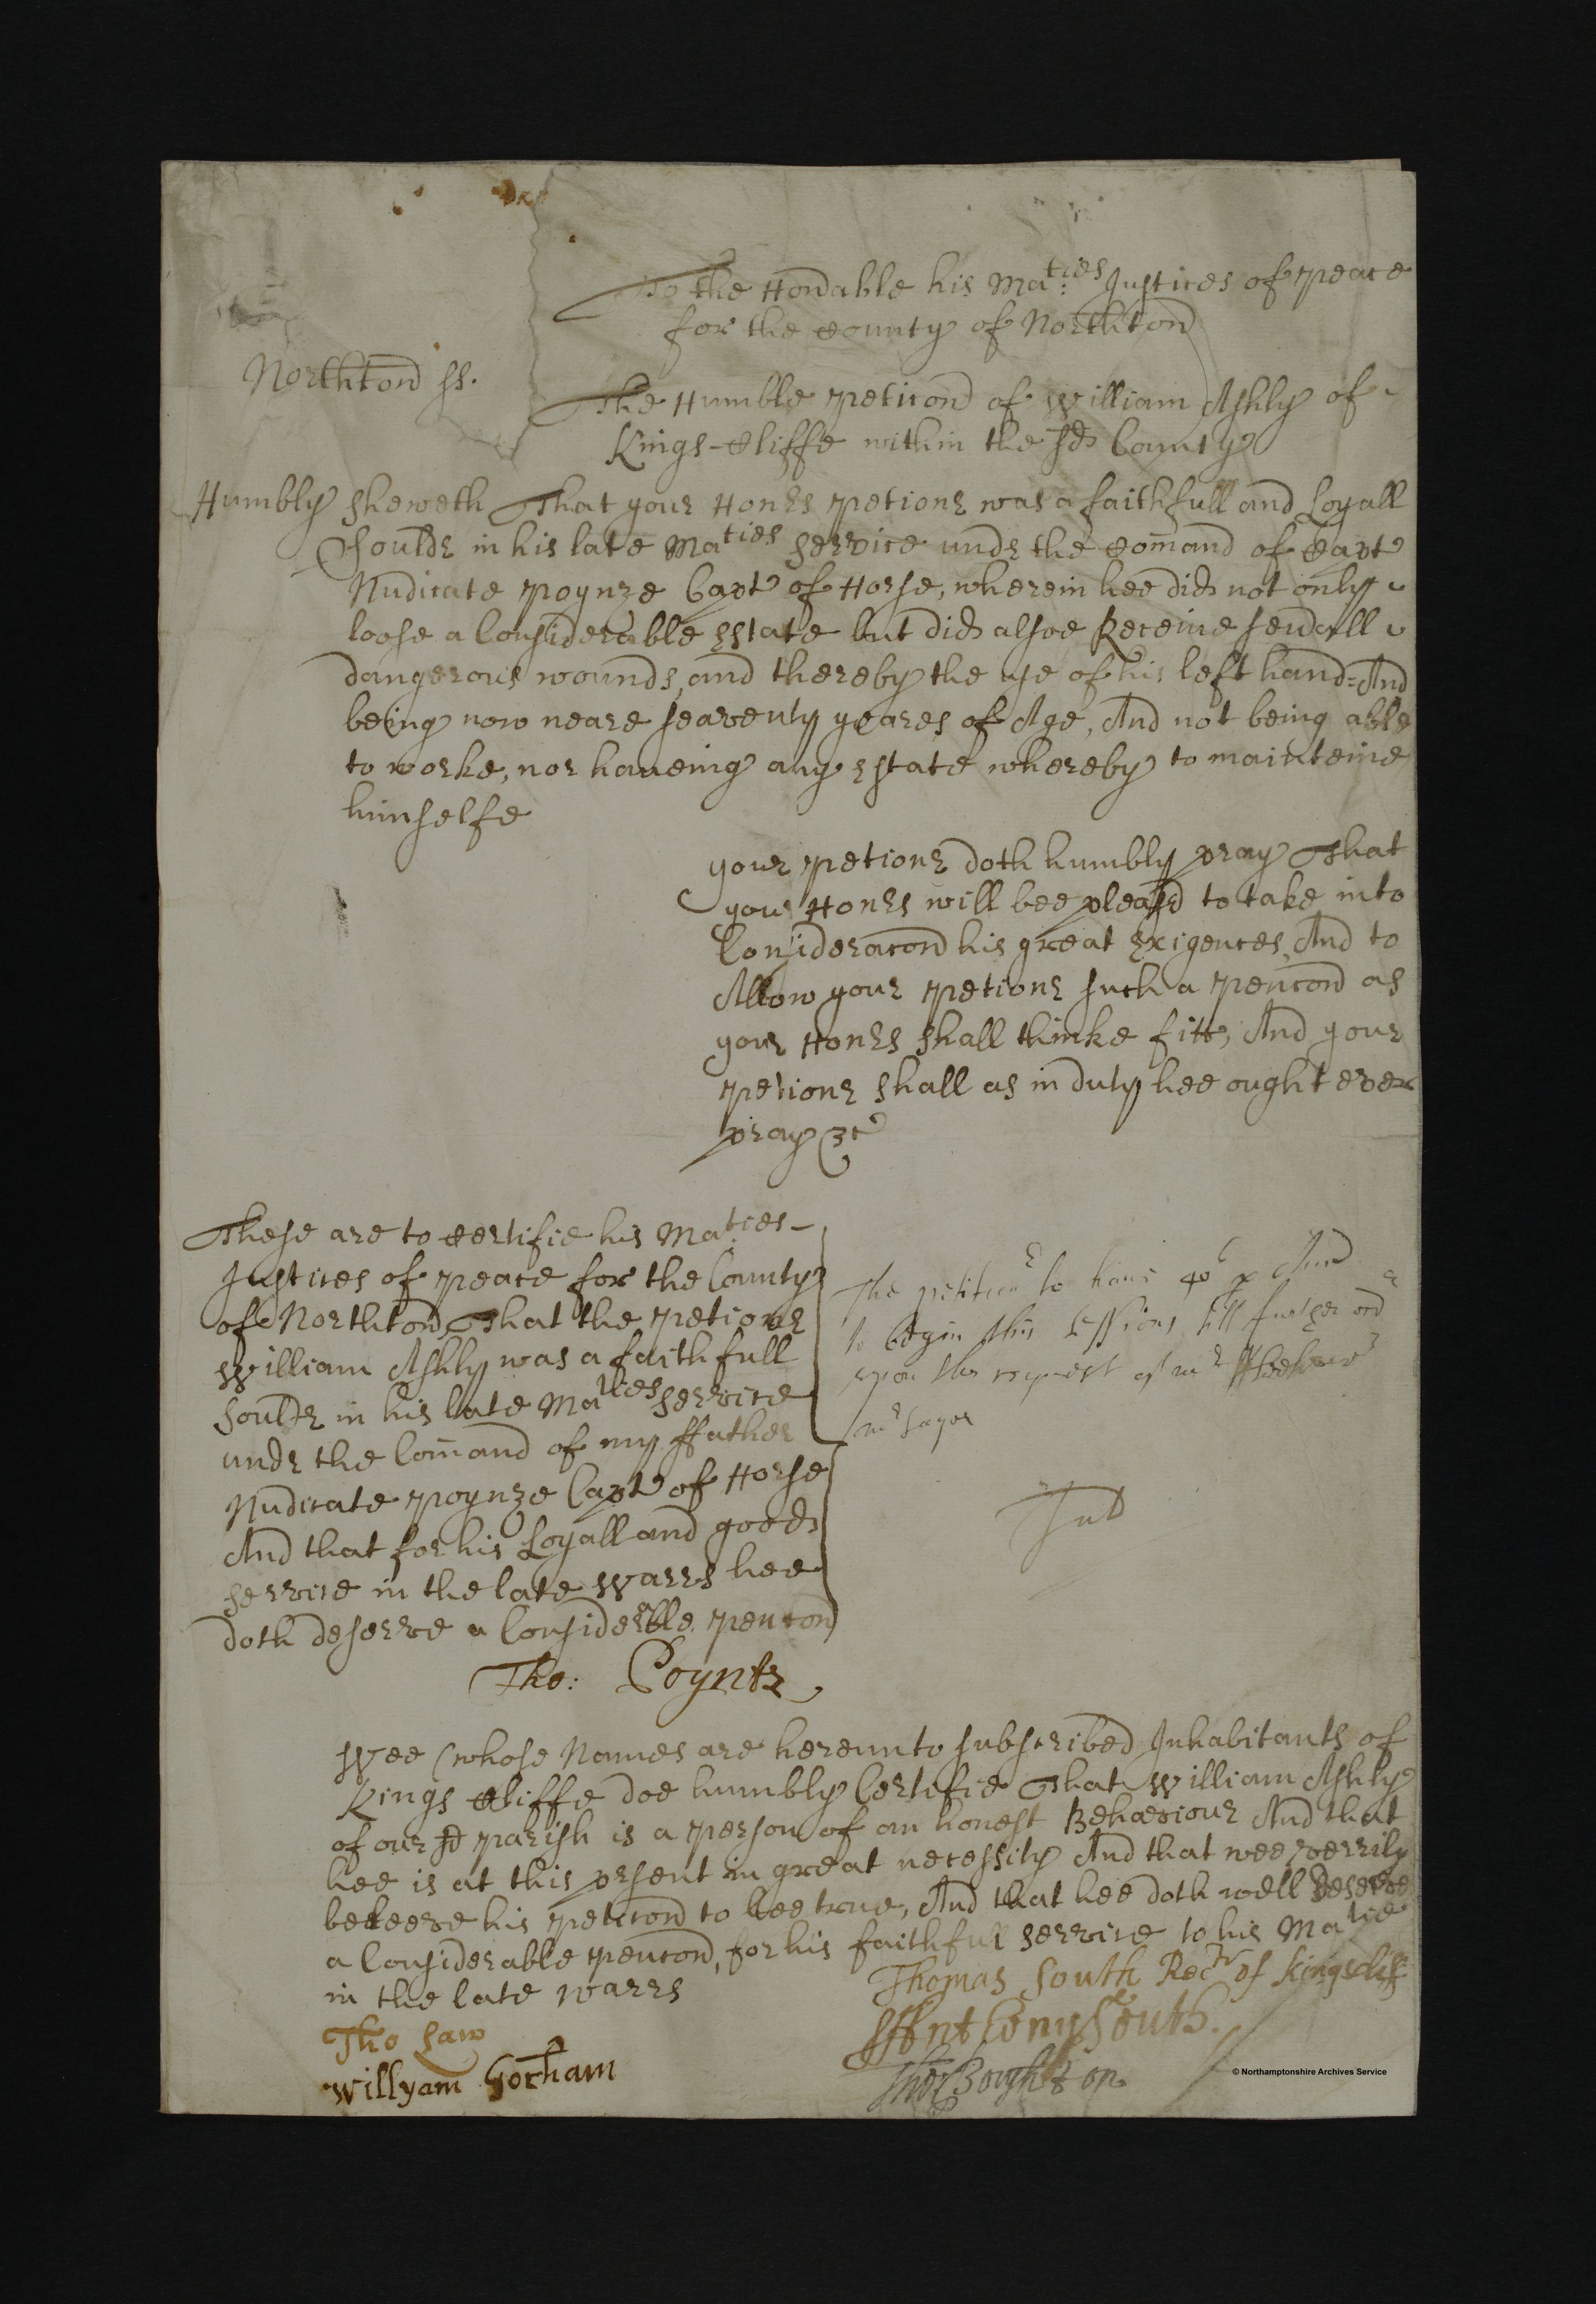 To the Honable his Ma:ties Justices of peace
for the County of Northton
Northton ss.
The Humble peticon of William Ashly of
Kings-Cliffe within the sd County
Humbly sheweth That your Honrs petionr was a faithfull and Loyall
Souldr in his late Maties service undr the Comand of Capt
Nudicate Poynze Capt of Horse, wherein hee did not only
loose a Considerable Estate but did alsoe Receive severall
dangerous wounds, and thereby the use of his left hand: And
being now neare seaventy yeares of Age, And not being able
to worke, nor haueing any Estate whereby to mainteine
himselfe
your petionr doth humbly pray That
your Honrs will bee pleasd to take into
Consideracon his great Exigences, And to
Allow your petionr such a pencon as
your Honrs shall thinke fitt, And your
petionr shall as in duty hee ought ever
pray &c
These are to Certifie his Ma:ties
Justices of peace for the County
of Northton, That the petionr
William Ashly was a faithfull
souldr in his late Maties service
undr the Comand of my ffather
Nudicate Poynze Capt of Horse
And that for his Loyall and good
service in the late Warrs hee
doth deserve a Considerable pencon
Tho: Poyntz
The petitionr to have 40s p Ann
to begin this Sessions till further ordr
upon the request of mr
mr
Wee (whose Names are hereunto subscribed Inhabitants of
Kings Cliffe doe humbly Certifie That William Ashly
of our sd parish is a person of an honest Behaviour And that
hee is at this prsent in great necessity And that wee verrily
beleeve his peticon to bee true, And that hee doth well Deserve
a Considerable pencon, for his faithfull service to his Matie
in the late warrs
Thomas South Rectr of Kingscliff
Tho Law
South
Willyam Gorham
Tho: Boughton
© Northamptonshire Archives Service